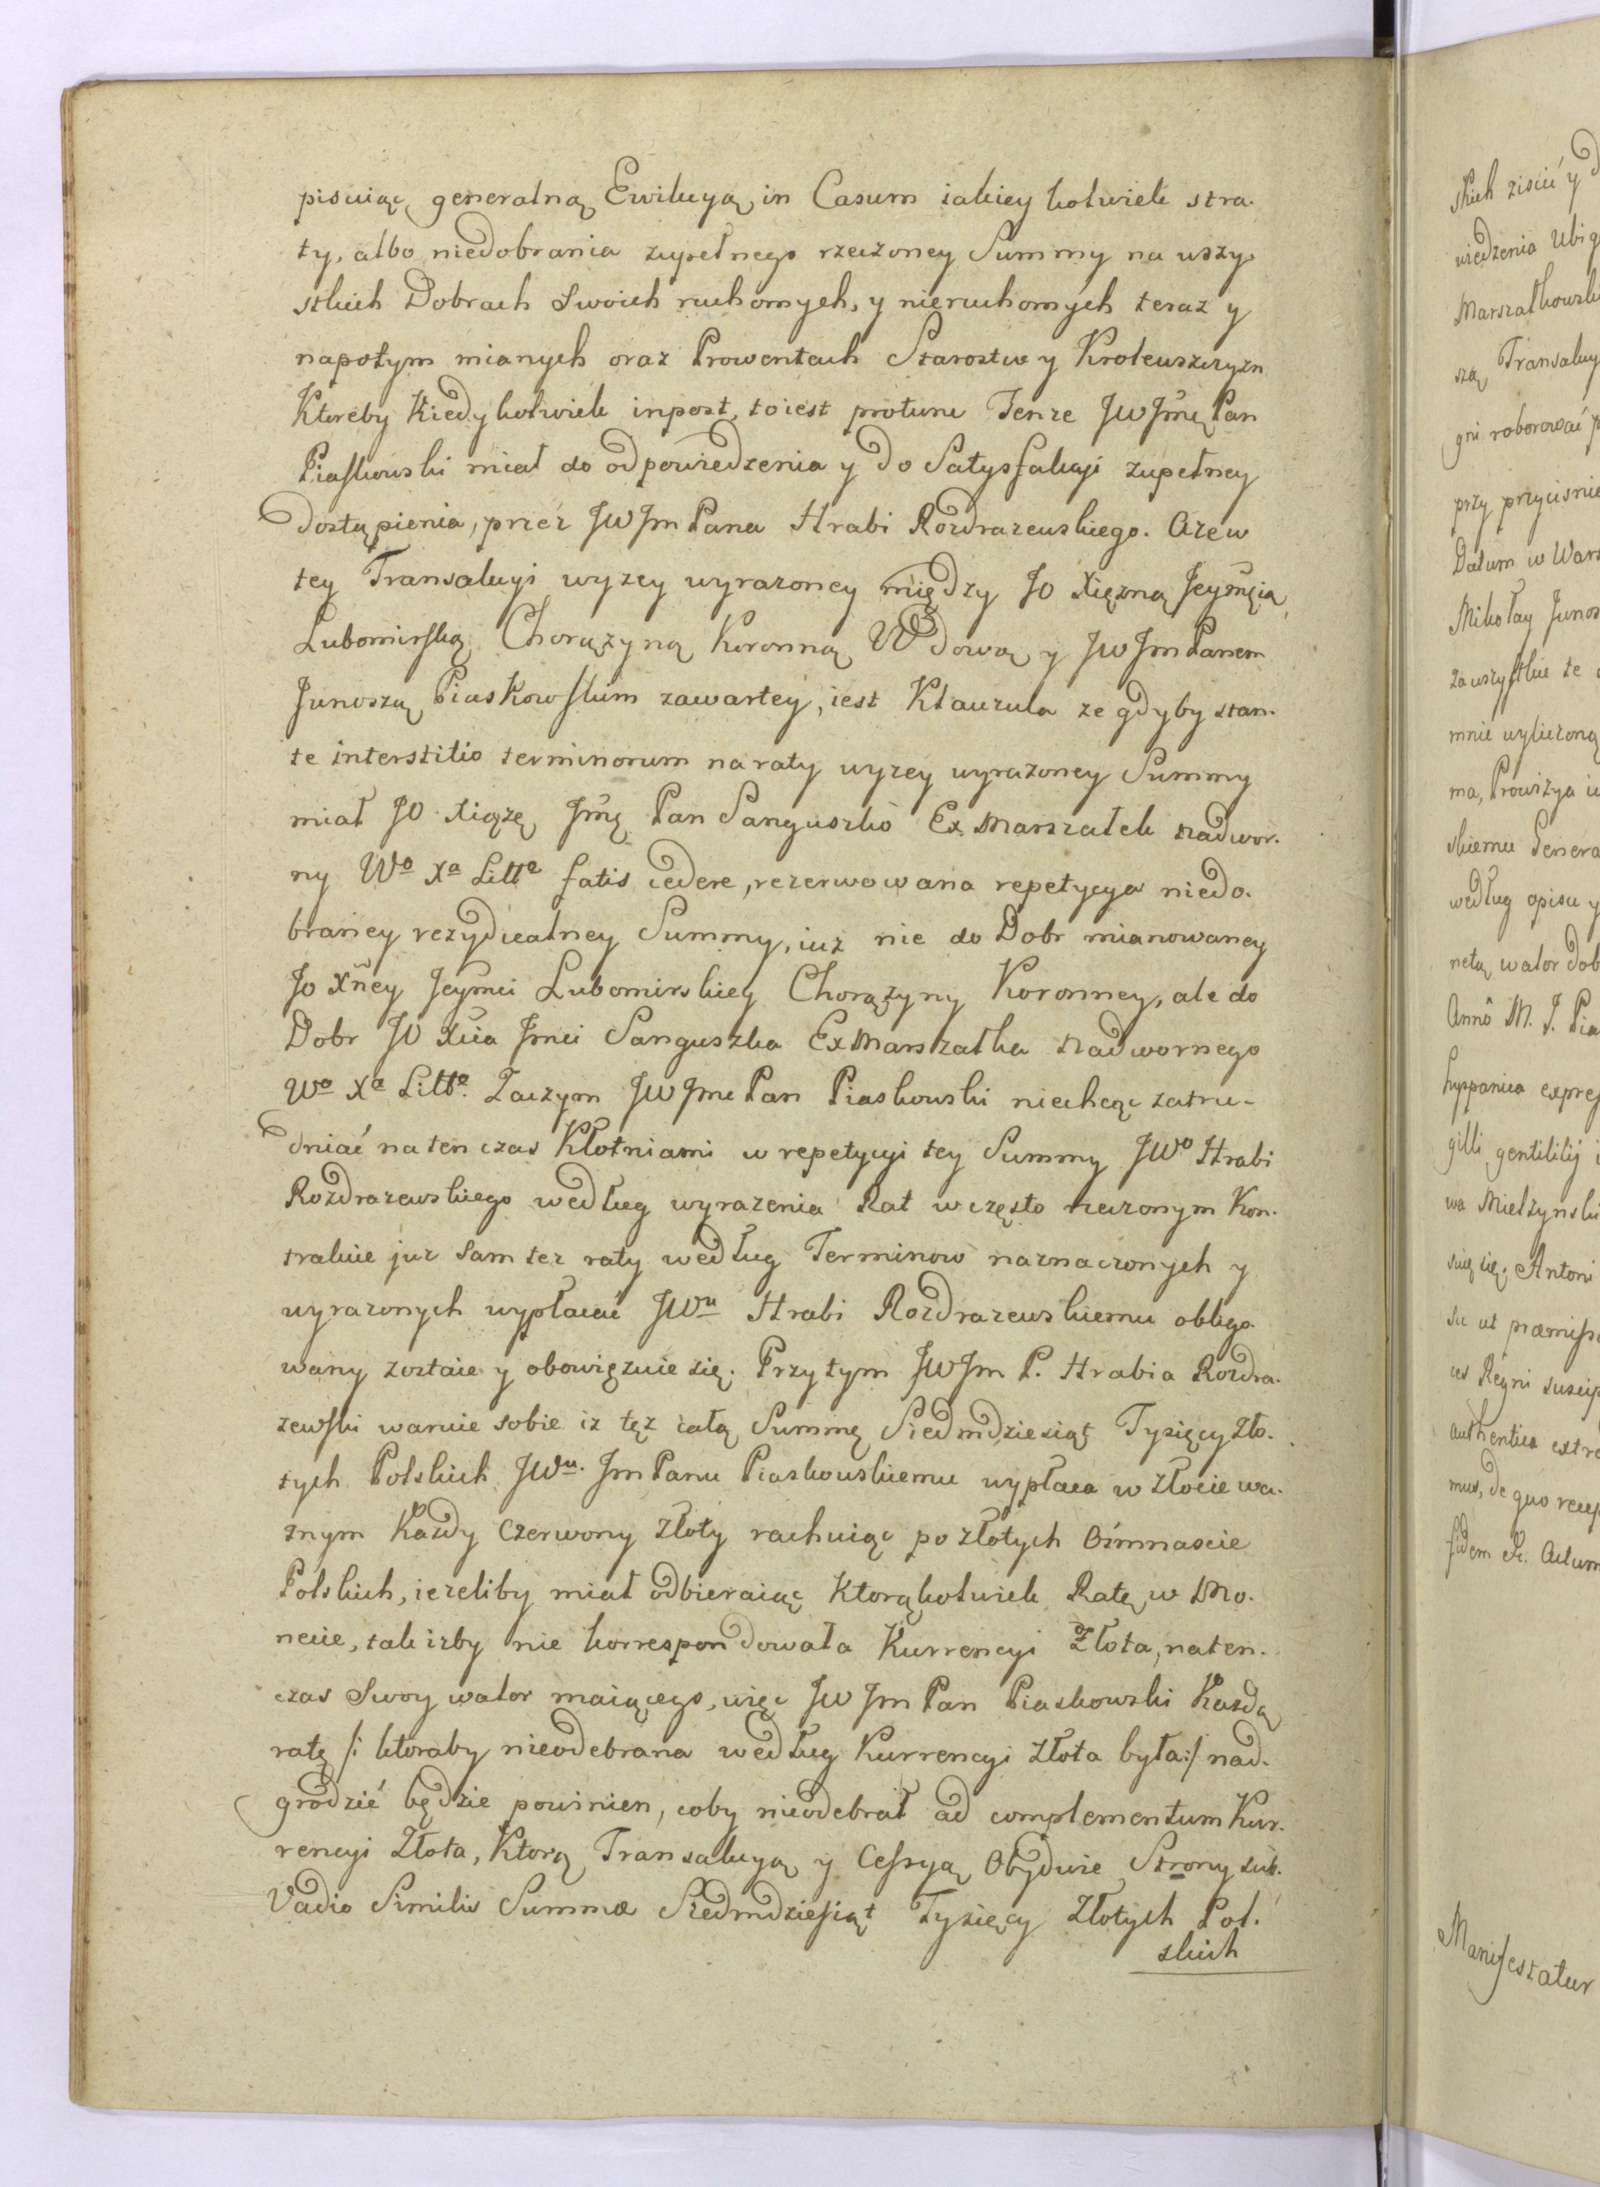 pisuiąc generalną Ewikcyą in Casum iakiey kolwiek stra.
ty, albo niedobrania zupełnego rzeczoney Summy na wszy.
stkich Dobrach Swoich ruchomych, y nieruchomych teraz y
napotym mianych oraz Prowentach Starostw y Krolewszczyzn
Ktoreby Kiedykolwiek inpost, toiest protunc Tenze JW Jmę Pan
Piaskowski miał do odpowiedzenia y do Satysfakcyi zupełney
dostąpienia, przez JW Jm Pana Hrabi Rozdrazewskiego. Aze w
tey Transakcyi wyzey wyrazoney między JO Xięzną Jeymcią
Lubomirską Chorązyną Koronną Wdową y JW Jm Panem
Junoszą Piaskowskim zawartey, iest Klauzula ze gdyby stan.
te interstitio terminorum na raty wyzey wyrazoney Summy
miał JO Xiązę Jmę Pan Sanguszko Ex Marszałek Nadwor.
ny Wo Xa Litto fatis cedere, rezerwowana repetycya niedo.
braney rezydualney Summy, iuz nie do Dobr mianowaney
Jo Xney Jeymci Lubomirskiey Chorązyny Koronney, ale do
Dobr JO Xcia Jmci Sanguszka Ex Marszałka Nadwornego
Wo Xa Litto. Zaczym JW Jmc Pan Piaskowski niechcąc zatru-
dniać na ten czas Kłotniami w repetycyi tey Summy JWo Hrabi
Rozdrazewskiego według wyrazenia Rat w często rzeczonym Kon.
trakcie juz Sam tez raty według Terminow naznaczonych y
wyrazonych wypłacać JWu Hrabi Rozdrazewskiemu obligo.
wany zostaie y obowięzuie się. Przytym JW Jm P. Hrabia Rozdra.
zewski waruie sobie iz tęz całą Summę Siedmdziesiąt Tysięcy Zło.
tych Polskich JWu. Jm Panu Piaskowskiemu wypłaca w złocie wa.
znym Kazdy Czerwony Złoty rachuiąc po złotych Ośmnascie
Polskich, iezeliby miał odbieraiąc Ktorąkolwiek Ratę w Mo.
necie, tak izby nie korrespondowała Kurrencyi Złota, na ten.
czas Swoy walor maiącego, więc JW Jm Pan Piaskowski Kazdą
ratę /: ktoraby nieodebrana według Kurrencyi Złota była:/ nad.
grodzić będzie powinien, coby nieodebrał ad complementum Kur.
rencyi Złota, Ktorą Transakcyą y Cessyą Obydwie Strony sub.
Vadio Similis Summæ Siedmdziesiąt Tysięcy Złotych Pol.
skich
skich ziscić y d
wiedzenia Ubi q
Marszałkowsk
szą Transakcy
gni roborować p
przy przycisnie
Datum w Wars
Mikołay Junos
za wszystkie te
mnie wyliczoną
ma, Prowizya i
skiemu Genera
według opisu y
netą walor dob
Anno M. J. Pia
hyppanica expres
gilli gentilitij i
wa Mielzynski
się. Antoni
su ut præmisso
ces Regni suscip
authentica extra
mus, de quo recep
fidem &c. Actum
Manifestatur